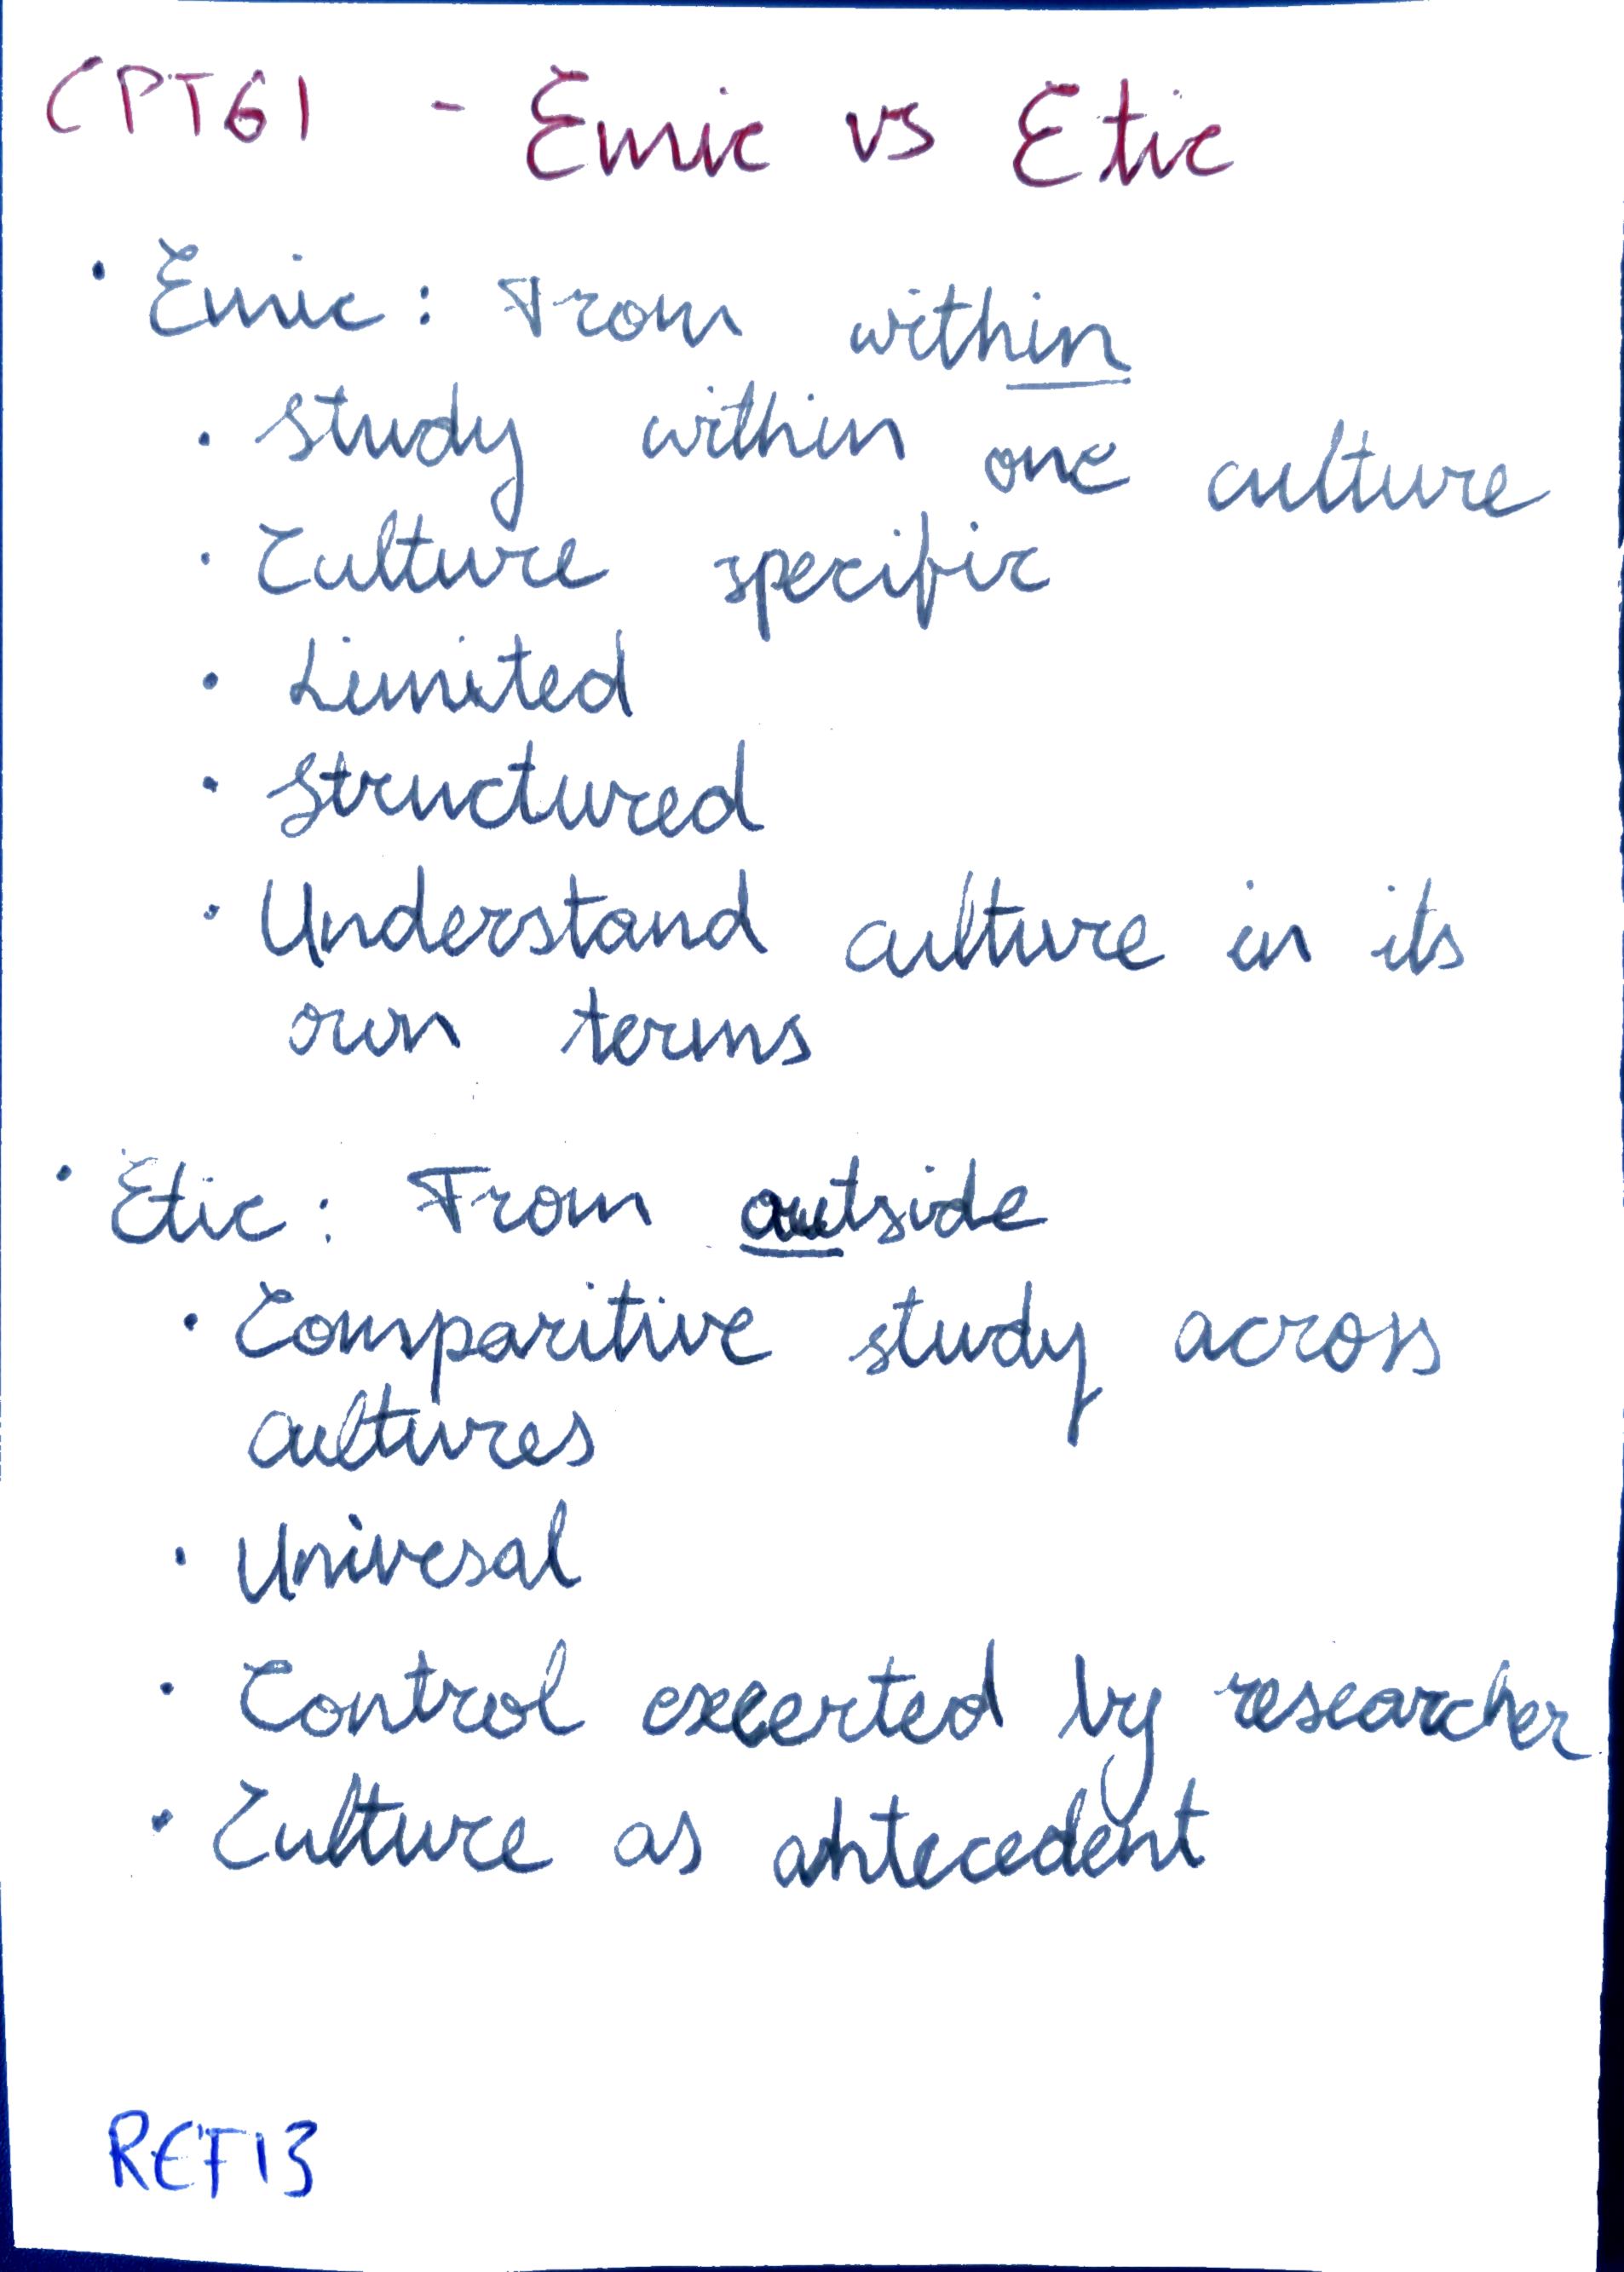 CPT61 - Emic vs Etic
• Emic: From within
• Study within one culture
• Culture specific
• Limited
• Structured
• Understand culture in its
own terms
• Etic: From outside
• Comparitive study across
cultures
• Univesal
• Control excerted by researcher
• Culture as antecedent
REF13